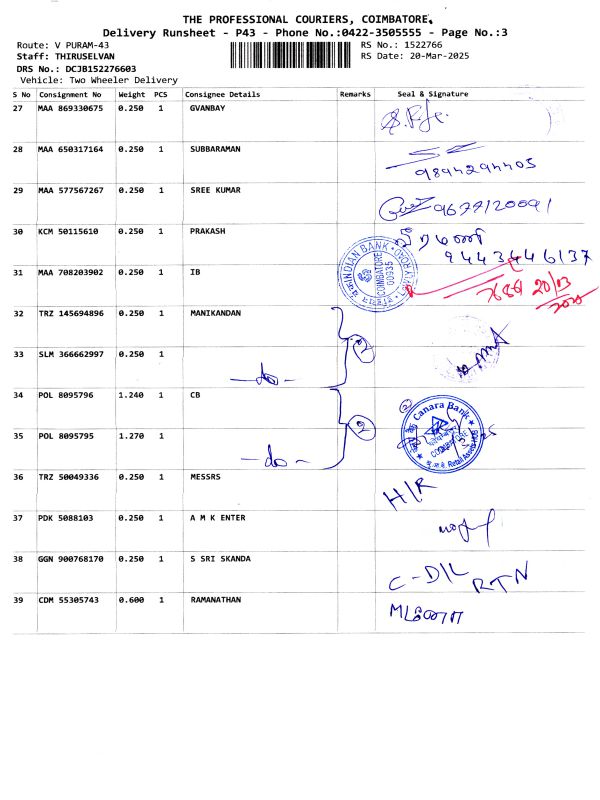 THE PROFESSIONAL COURIERS, COIMBATORE.
Delivery Runsheet - P43 - Phone No.:0422-3505555 - Page No.:3
Route: V PURAM-43 RS No.: 1522766
Staff: THIRUSELVAN RS Date: 20-Mar-2025
DRS No.: DCJB152276603
Vehicle: Two Wheeler Delivery
S No Consignment No Weight PCS Consignee Details Remarks Seal & Signature
27 MAA 869330675 0.250 1 GVANBAY
28 MAA 650317164 0.250 1 SUBBARAMAN
9894294405
29 MAA 577567267 0.250 1 SREE KUMAR 9677120091
30 KCM 50115610 0.250 1 PRAKASH வீரமணி
9443446137
31 MAA 708203902 0.250 1 IB INDIAN BANK COIMBATORE 20/03
32 TRZ 145694896 0.250 1 MANIKANDAN
33 SLM 366662997 0.250 1 2
-do-
34 POL 8095796 1.240 1 CB 2 Canara Bank
35 POL 8095795 1.270 1 2
-do-
36 TRZ 50049336 0.250 1 MESSRS H/R
37 PDK 5088103 0.250 1 A M K ENTER
38 GGN 900768170 0.250 1 S SRI SKANDA C-D/L RTN
39 CDM 55305743 0.600 1 RAMANATHAN